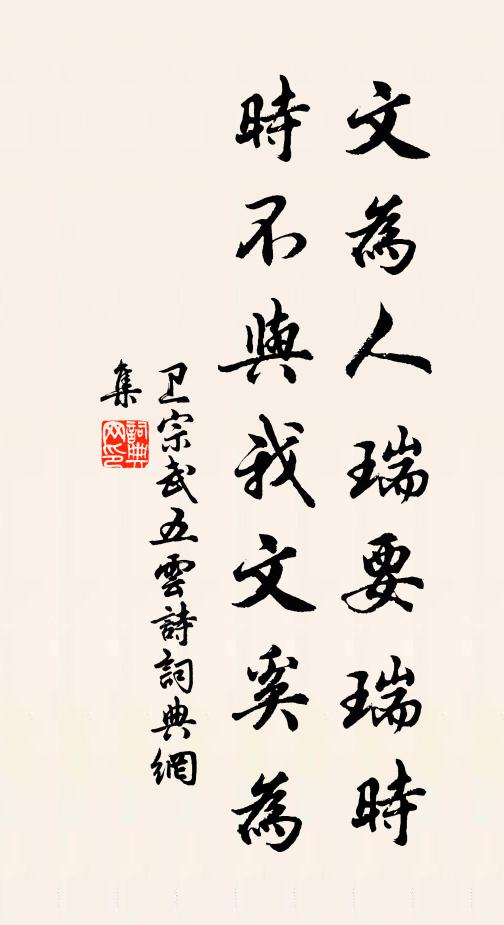 文為人瑞要瑞時
時不與我文奚為
卫宗武五雲詩詞典網
集
詞典網印